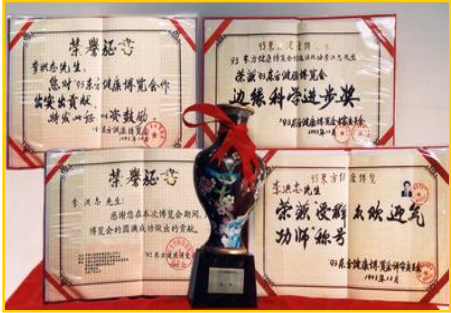 荣誉证书
李洪志先生:
您对'93东方健康博览会作
出突出贡献,
特发此证 以资鼓励
'93东方健康博览会
1993年12月
李洪志先生
荣获'93东方健康博览会
边缘科学进步奖
'93东方健康博览会
1993年12月
荣誉证书
李洪志 先生:
感谢您在本次博览会期间,
博览会的圆满成功做出的贡献。
'93东方健康博览会
'93东方健康博览
李洪志先生
荣获受群众欢迎气
功师称号
'93东方健康博览会评审委员会
1993年12月